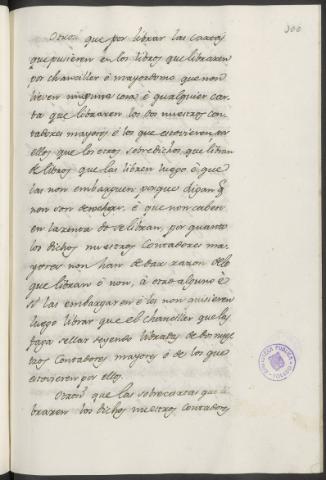 300
Otrosi que por librar las cartas
que pusieren en los libros que libraren
por chanciller o mayordomo que non
lieven ninguna cosa è qualquier car-
ta que libraren los dos nuestros con-
tadores mayores ò los que estovieren por
ellos que los otros sobredichos que libran
de libros que las libren luego è que
las non embarguen porque digan q̃
non son de è que non caben
en la renta do se libran, por quanto
los dichos nuestros Contadores ma-
yores non han de dar razon dello
que libran ò non, à otro alguno è
si las embargaren è las non quisieren
luego librar que el chanciller que les
faga sellar seyendo libradas de dos nues-
tros Contadores mayores ò de los que
estovieren por ellos.
Otrosi que las sobrecartas que li-
braren los dichos nuestros Contadores
BIBLIOTECA PUBLICA
TOLEDO